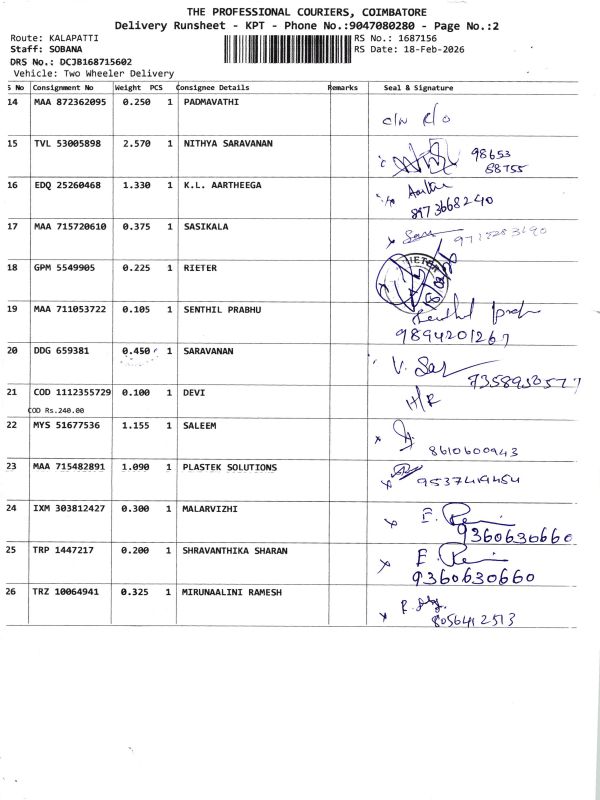 THE PROFESSIONAL COURIERS, COIMBATORE
Delivery Runsheet - KPT - Phone No.:9047080280 - Page No.:2
Route: KALAPATTI
RS No.: 1687156
Staff: SOBANA
RS Date: 18-Feb-2026
DRS No.: DCJB168715602
Vehicle: Two Wheeler Delivery
S No Consignment No Weight PCS Consignee Details Remarks Seal & Signature
14 MAA 872362095 0.250 1 PADMAVATHI
C/N R/O
15 TVL 53005898 2.570 1 NITHYA SARAVANAN
98653
88755
16 EDQ 25260468 1.330 1 K.L. AARTHEEGA
8973668240
17 MAA 715720610 0.375 1 SASIKALA
18 GPM 5549905 0.225 1 RIETER
19 MAA 711053722 0.105 1 SENTHIL PRABHU
Senthil
9894201267
20 DDG 659381 0.450 1 SARAVANAN
V. Sar
21 COD 1112355729 0.100 1 DEVI
H/R
COD Rs.240.00
22 MYS 51677536 1.155 1 SALEEM
x
8610600943
23 MAA 715482891 1.090 1 PLASTEK SOLUTIONS
x 9537419454
24 IXM 303812427 0.300 1 MALARVIZHI
x E.
9360630660
25 TRP 1447217 0.200 1 SHRAVANTHIKA SHARAN
x E.
9360630660
26 TRZ 10064941 0.325 1 MIRUNAALINI RAMESH
x R.
8056412513